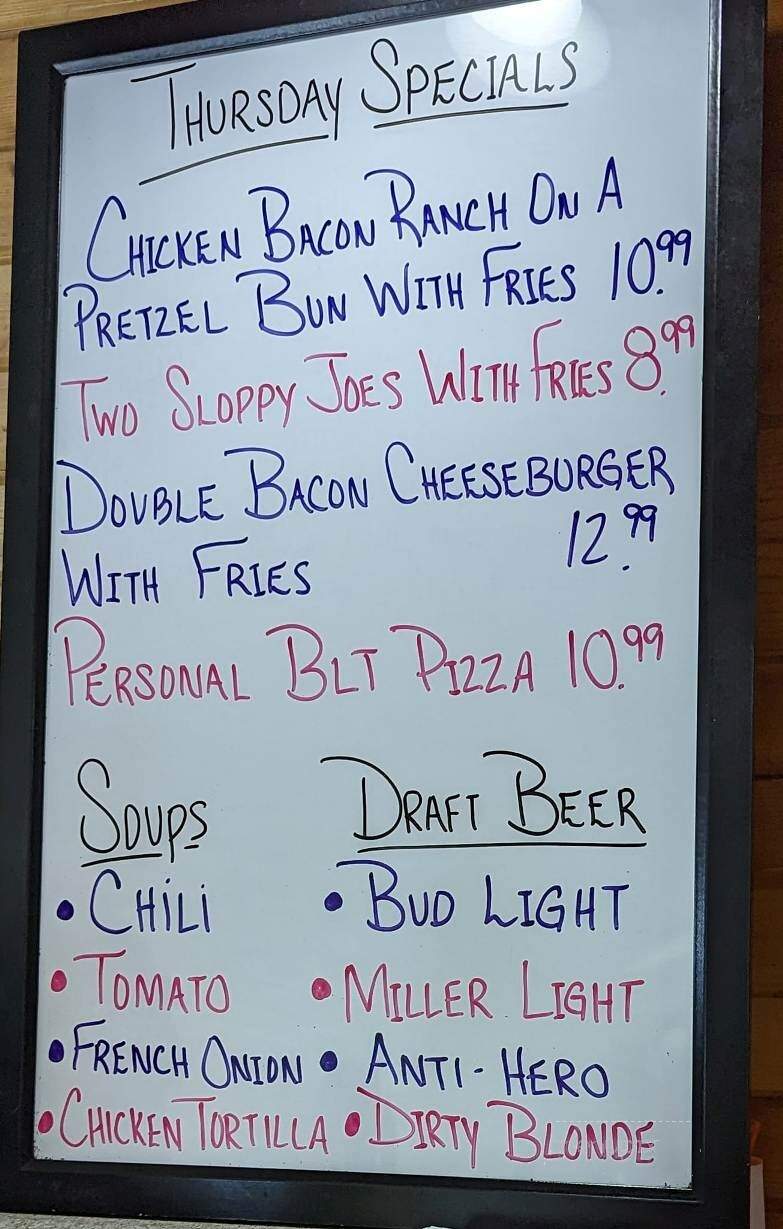 THURSDAY SPECIALS
CHICKEN BACON RANCH ON A
PRETZEL BUN WITH FRIES 10.99
TWO SLOPPY JOES WITH FRIES 8.99
DOUBLE BACON CHEESEBURGER
WITH FRIES 12.99
PERSONAL BLT PIZZA 10.99
SOUPS
• CHILI
• TOMATO
• FRENCH ONION
• CHICKEN TORTILLA
DRAFT BEER
• BUD LIGHT
• MILLER LIGHT
• ANTI-HERO
• DIRTY BLONDE